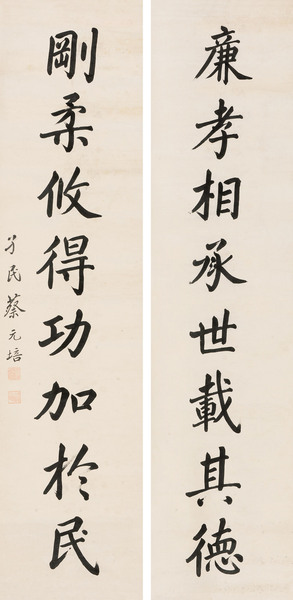 廉孝相承世載其德
剛柔攸得功加於民
孑民蔡元培